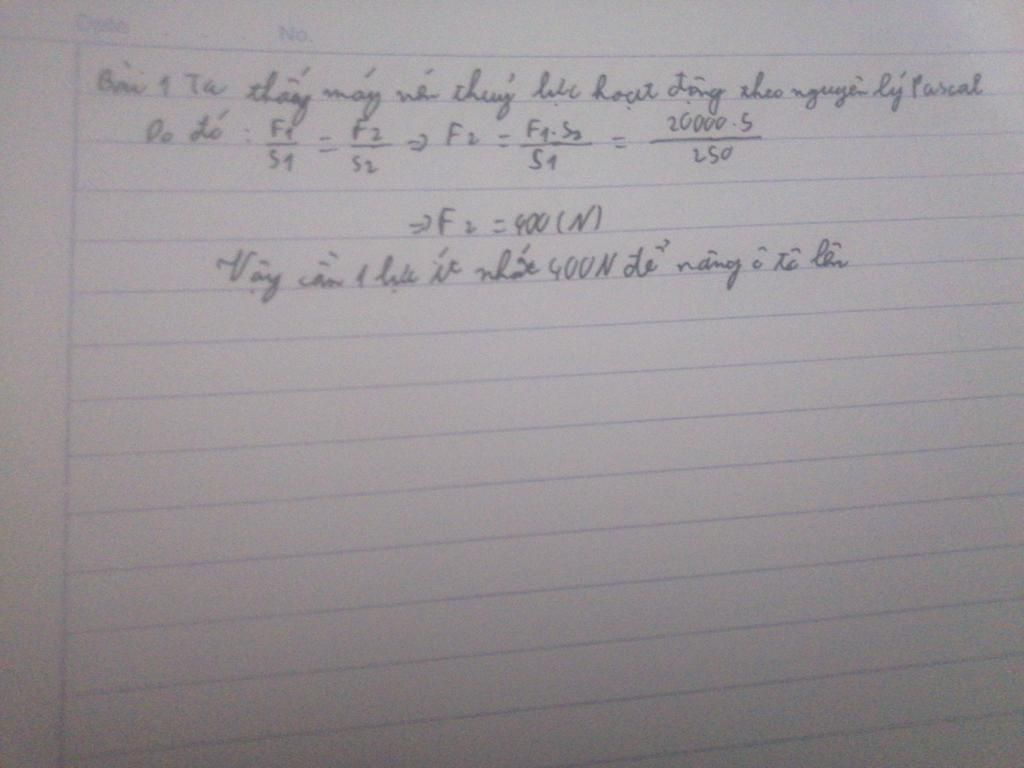 No.
Bài 1 Ta thấy máy nén thuỷ lực hoạt động theo nguyên lý Pascal
Do đó : F1/S1 = F2/S2 => F2 = F1.S2/S1 = 20000.5/250
=> F2 = 400 (N)
Vậy cần 1 lực ít nhất 400N để nâng ô tô lên